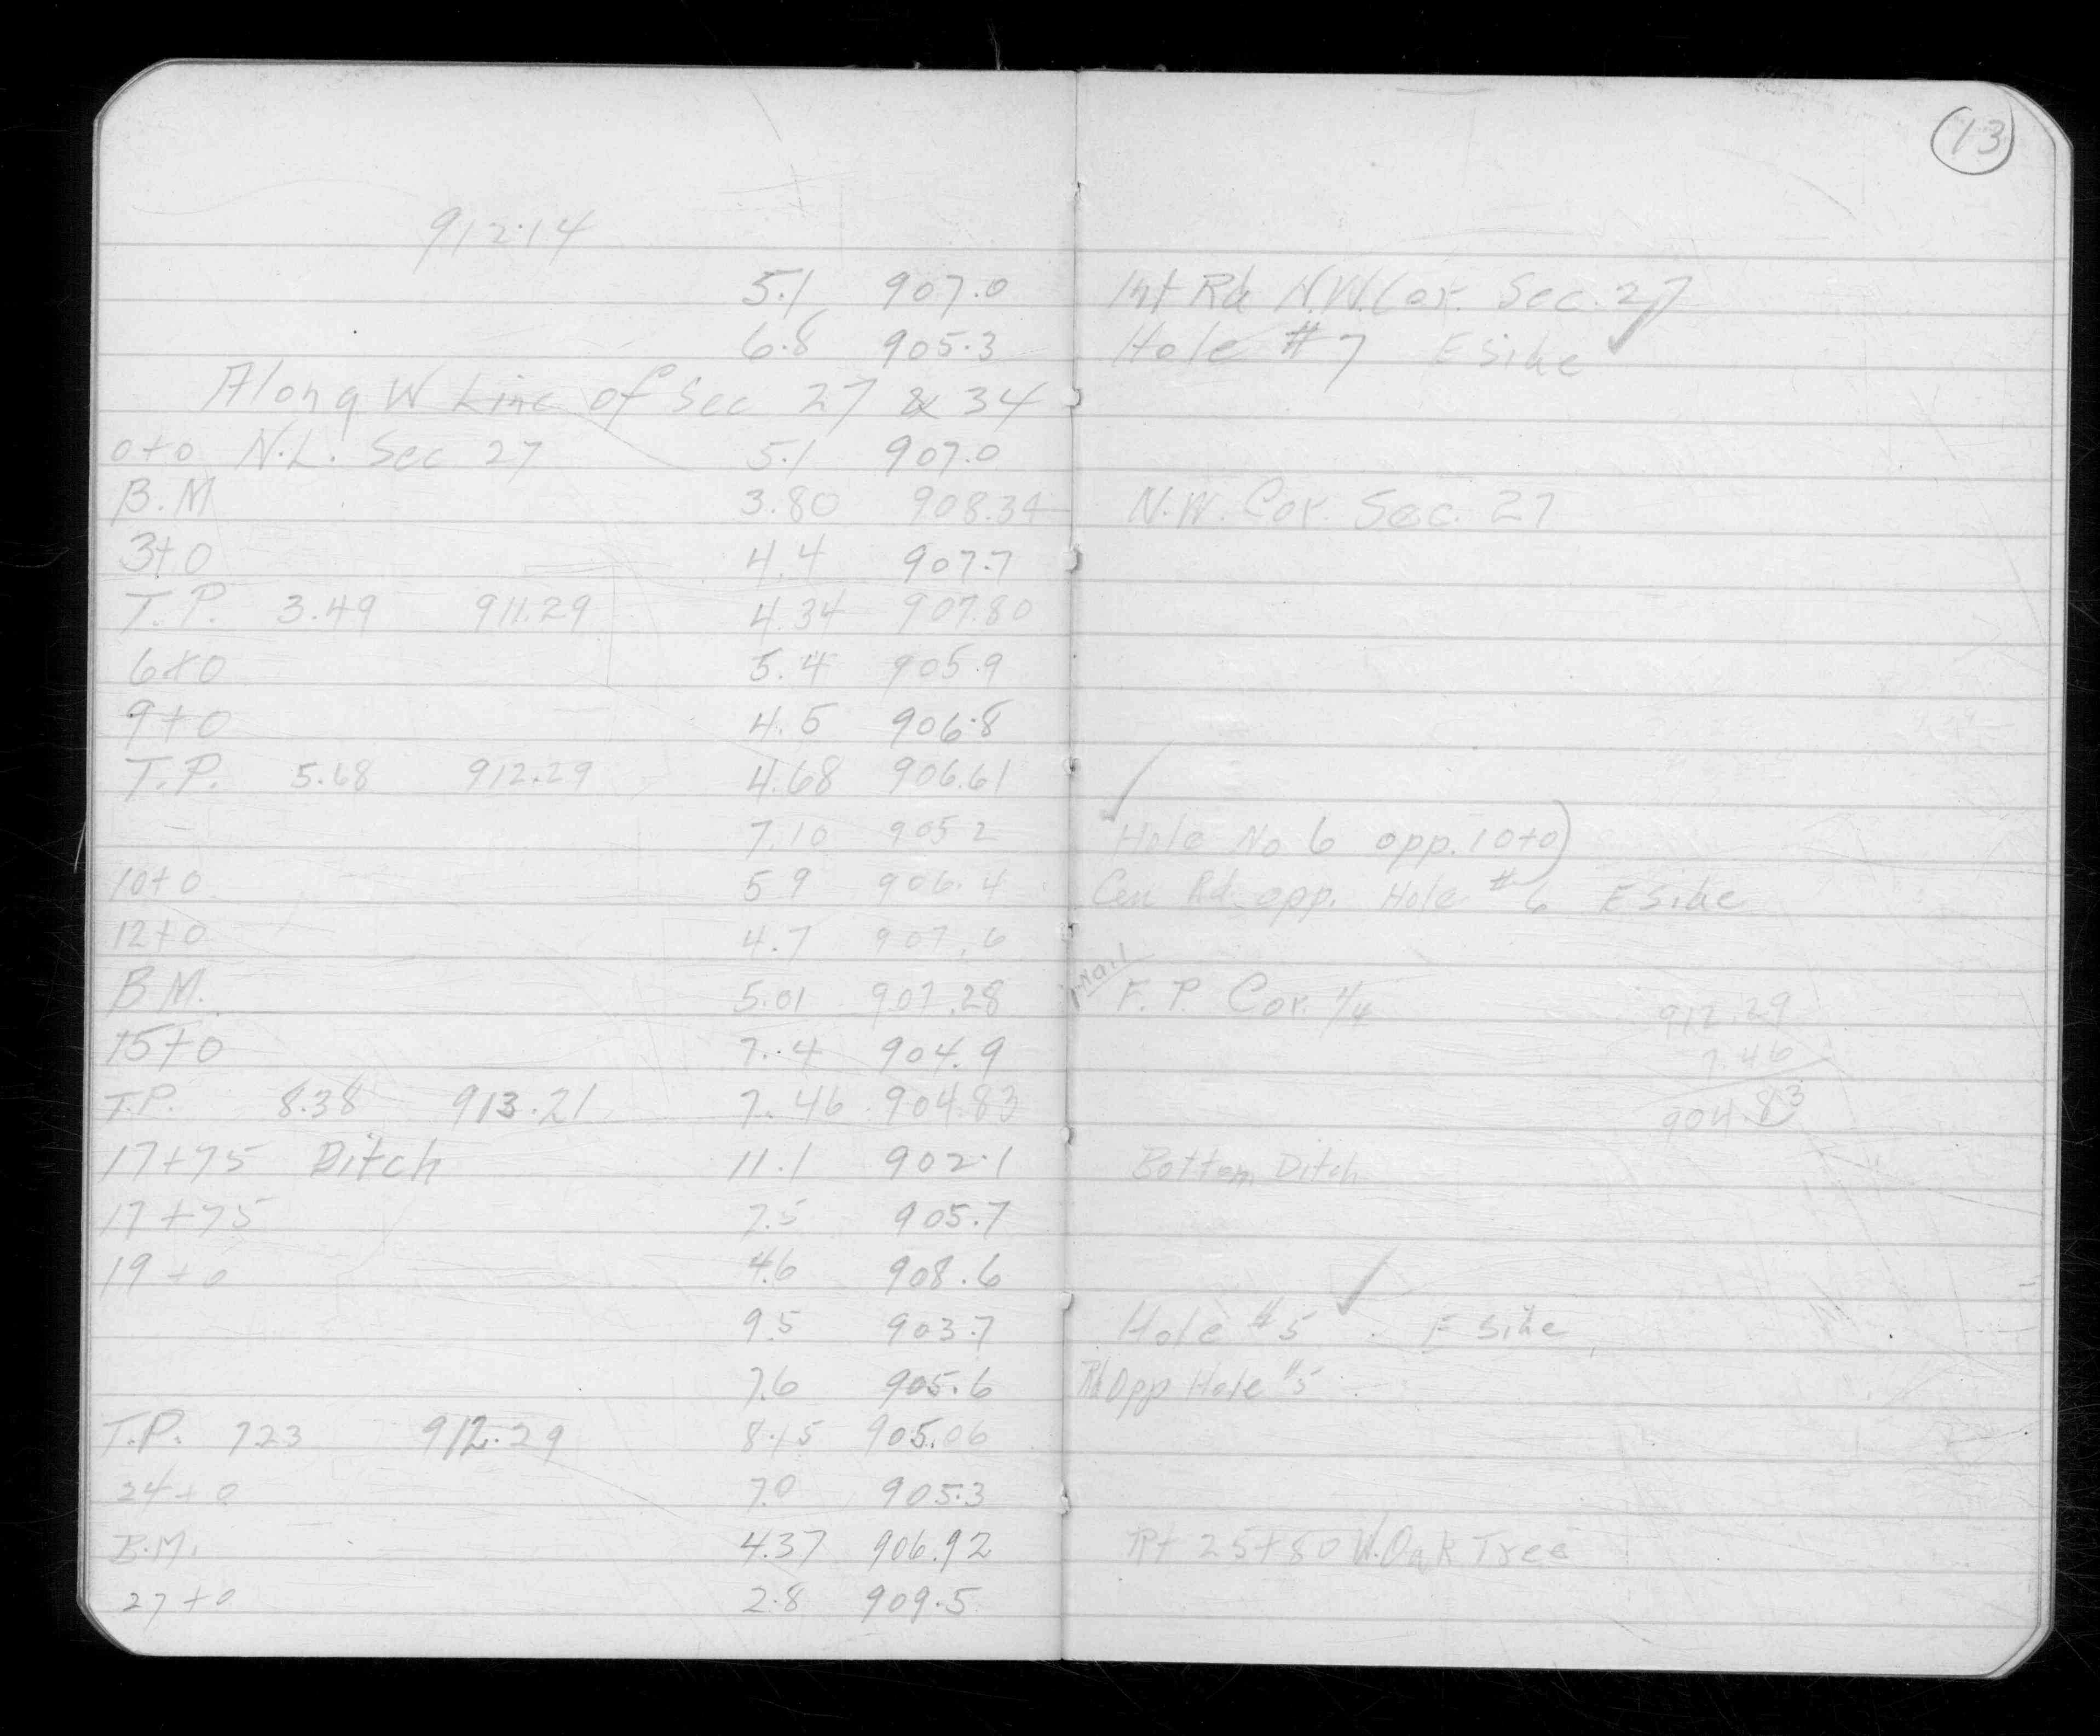 13
912.14
5.1 907.0 Int Rd N.W. Cor. Sec. 27
6.8 905.3 Hole #7 E Side
Along W Line of Sec 27 & 34
0+0 N.L. Sec 27 5.1 907.0
B.M 3.80 908.34 N.W. Cor. Sec. 27
3+0 4.4 907.7
T.P. 3.49 911.29 4.34 907.80
6+0 5.4 905.9
9+0 4.5 906.8
T.P. 5.68 912.29 4.68 906.61
7.10 905 2 Hole No 6 opp. 10+0)
10+0 5 9 906.4 Cen Rd opp. Hole #6 E Side
12+0 4.7 907.6
Nail
B M. 5.01 907.28 F. P. Cor. 1/4 912.29
15+0 7.4 904.9 7.46
T.P. 8.38 913.21 7.46 904.83 904.83
17+75 Ditch 11.1 902.1 Bottom Ditch
17+75 7.5 905.7
19+0 4.6 908.6
9.5 903.7 Hole #5 E Side
7.6 905.6 Rd Opp Hole #5
T.P. 7.23 912.29 8.15 905.06
24+0 7.0 905.3
B.M. 4.37 906.92 25+80 W. Oak Tree
27+0 2.8 909.5